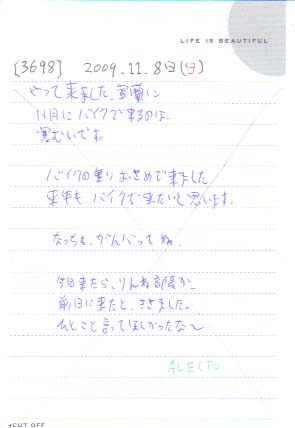 LIFE IS BEAUTIFUL
[3698] 2009.11.8日(日)
やって来ました、室蘭に
11月にバイクで来るのは、
寒むいですね
バイクの乗りおさめで来ました
来年も バイクで来たいと思います。
なっちも、がんばってね。
今日来たら、りんね部長が、
前日に来たと、ききました。
ひとこと言ってほしかったな〜
ALECTO
◂CUT OFF